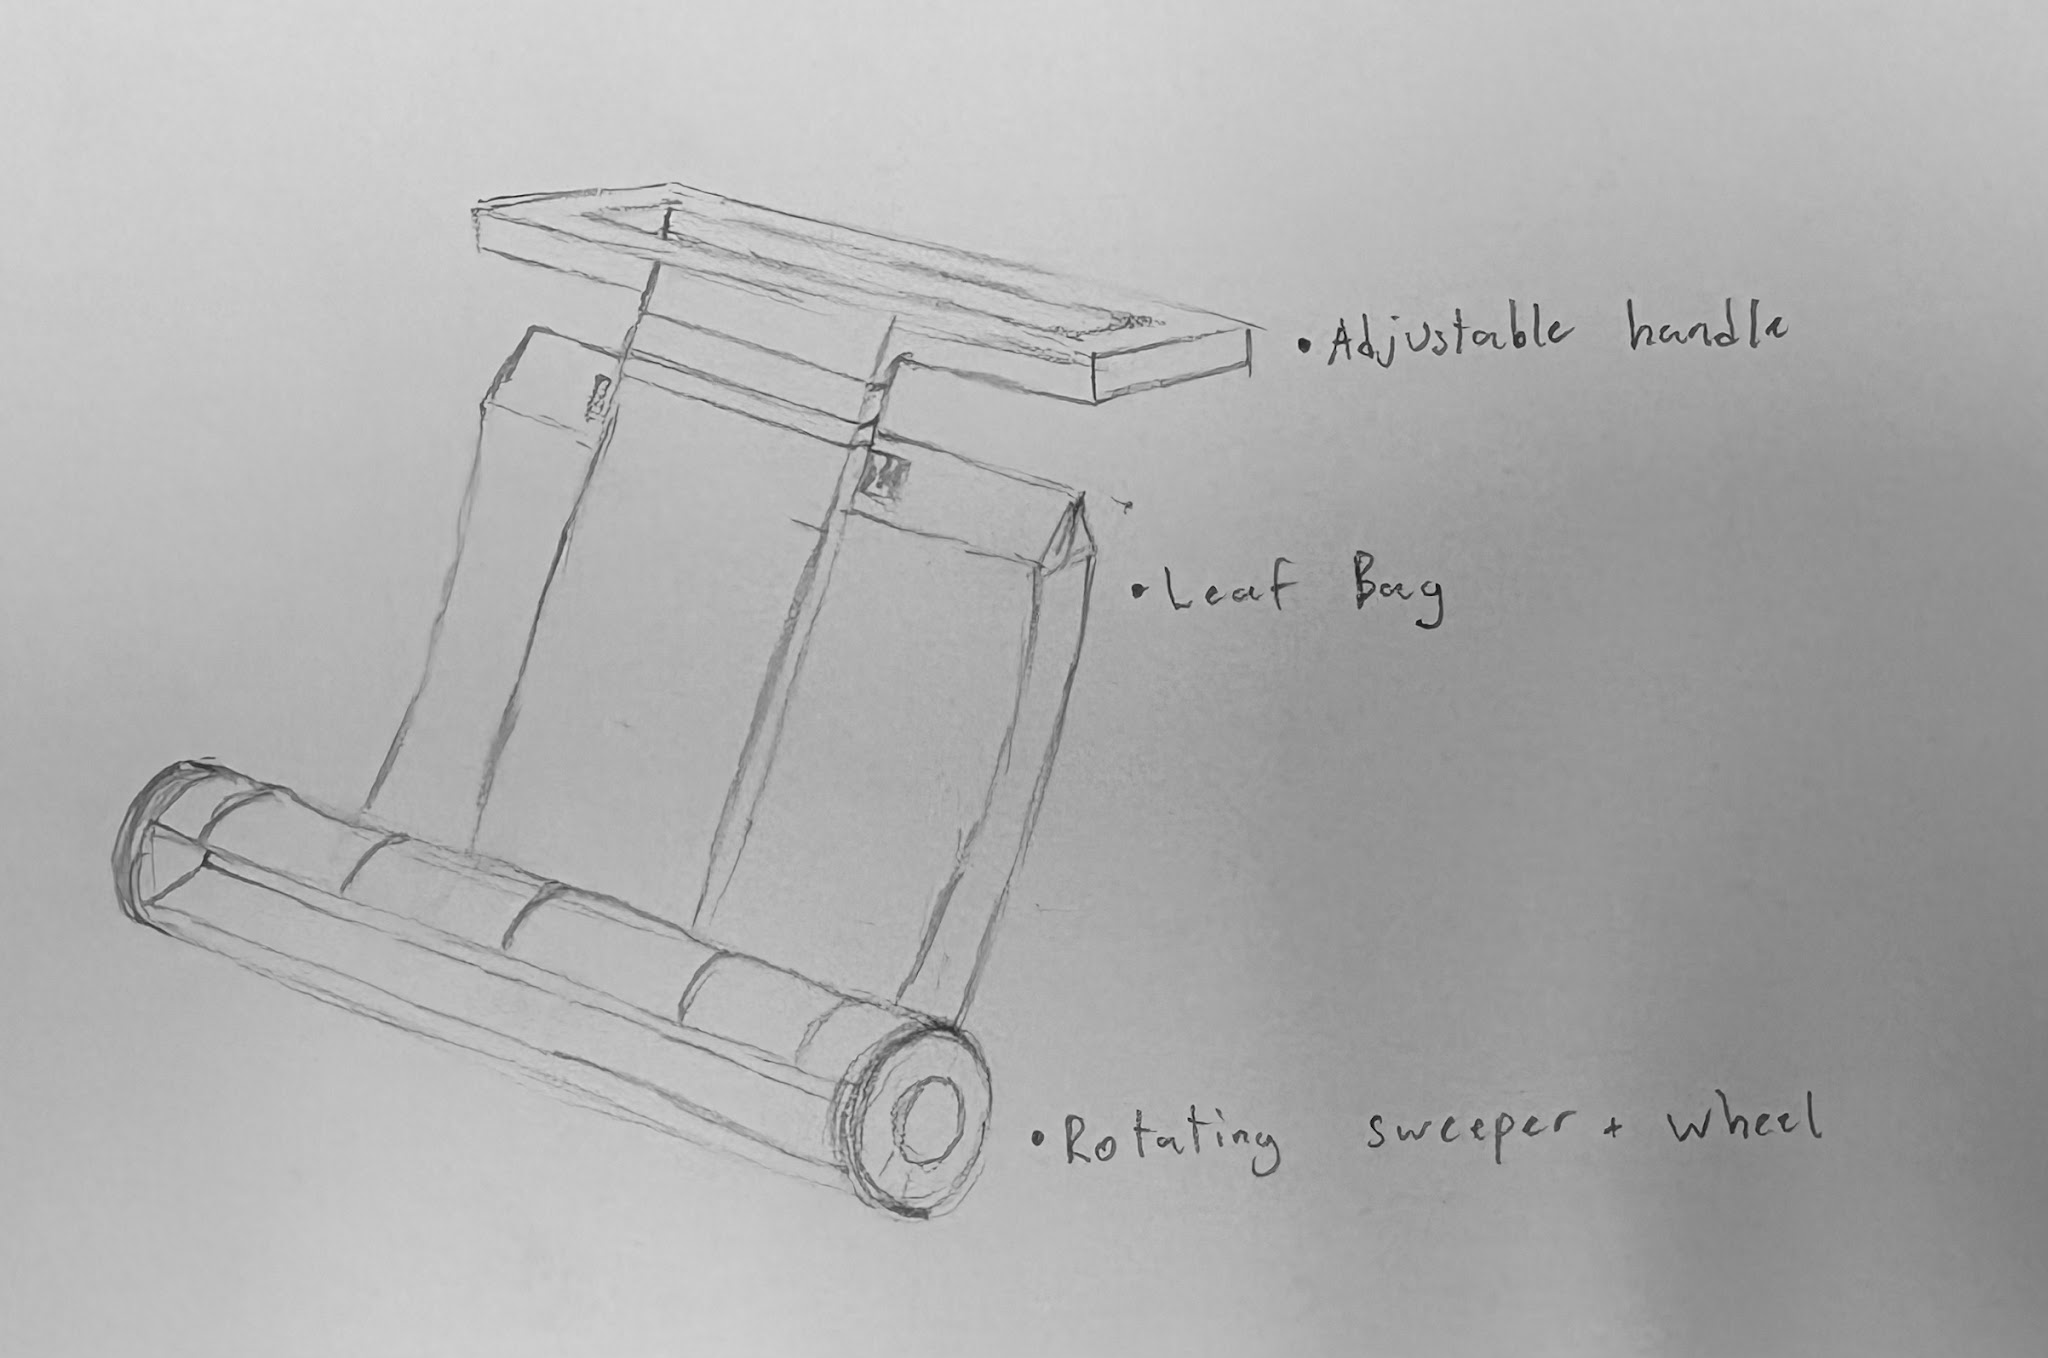 • Adjustable handle
• Leaf Bag
• Rotating sweeper + wheel